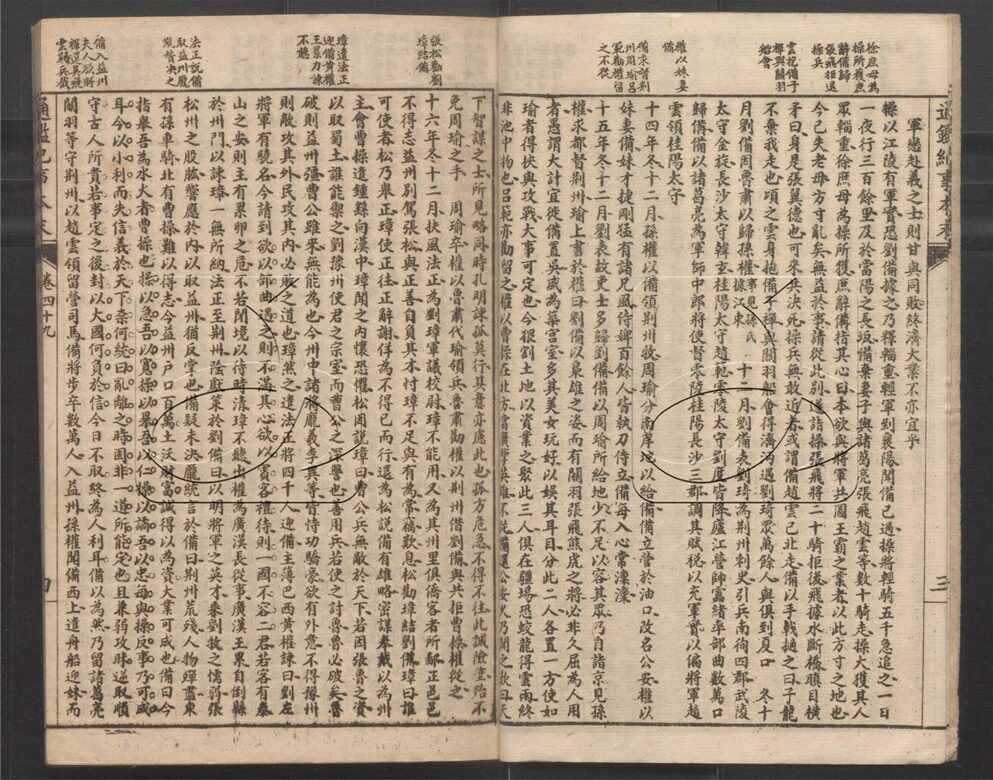 徐庶母為
操所獲庶
辭備歸操
張飛拒退
操兵
雲抱備子
禪與關羽
船會
權以妹妻
備
備求督荊
州周瑜呂
範勸權留
之不從
軍戀赴義之士則甘與同敗終濟大業不亦宜乎
操以江陵有軍實恐劉備據之乃釋輜重輕軍到襄陽聞備已過操將輕騎五千急追之一日
一夜行三百餘里及於當陽之長坂備棄妻子與諸葛亮張飛趙雲等數十騎走操大獲其人
眾輜重徐庶母為操所獲庶辭備指其心曰本欲與將軍共圖王霸之業者以此方寸之地也
今已失老母方寸亂矣無益於事請從此別遂詣操張飛將二十騎拒後飛據水斷橋瞋目橫
矛曰身是張翼德也可來共決死操兵無敢近者或謂備趙雲已北走備以手戟擿之曰子龍
不棄我走也頃之雲身抱備子禪與關羽船會得濟沔遇劉琦眾萬餘人與俱到夏口 冬十
月劉備因魯肅以歸孫權事見孫氏據江東 十二月劉備表劉琦為荊州刺史引兵南徇四郡武陵
太守金旋長沙太守韓玄桂陽太守趙範零陵太守劉度皆降廬江營帥雷緒率部曲數萬口
歸備備以諸葛亮為軍師中郎將使督零陵桂陽長沙三郡調其賦稅以充軍實以偏將軍趙
雲領桂陽太守
十四年冬十二月孫權以備領荊州牧周瑜分南岸地以給備備立營於油口改名公安權以
妹妻備妹才捷剛猛有諸兄風侍婢百餘人皆執刀侍立備每入心常凜凜
十五年冬十二月劉表故吏士多歸劉備備以周瑜所給地少不足以容其眾乃自詣京見孫
權求都督荊州瑜上書於權曰劉備以梟雄之姿而有關羽張飛熊虎之將必非久屈為人用
者愚謂大計宜徙備置吳盛為築宮室多其美女玩好以娛其耳目分此二人各置一方使如
瑜者得挾與攻戰大事可定也今猥割土地以資業之聚此三人俱在疆場恐蛟龍得雲雨終
非池中物也呂範亦勸留之權以曹操在北方當廣攬英雄不從備還公安久乃聞之歎曰天
張松勸劉
璋結備
璋遣法正
迎備黃權
王累力諫
不聽
法正說備
取益州龐
統贊決之
備入益州
夫人欲將
禪還吳飛
雲勒兵截
下智謀之士所見略同時孔明諫孤莫行其意亦慮此也孤方危急不得不往此誠險塗殆不
免周瑜之手 周瑜卒權以魯肅代瑜領兵魯肅勸權以荊州借劉備與共拒曹操權從之
十六年冬十二月扶風法正為劉璋軍議校尉璋不能用又為其州里俱僑客者所鄙正邑邑
不得志益州別駕張松與正善自負其才忖璋不足與有為常竊歎息松勸璋結劉備璋曰誰
可使者松乃舉正璋使正往正辭謝佯為不得已而行還為松說備有雄略密謀奉戴以為州
主會曹操遣鍾繇向漢中璋聞之內懷恐懼松因說璋曰曹公兵無敵於天下若因張魯之資
以取蜀土誰能禦之劉豫州使君之宗室而曹公之深讐也善用兵若使之討魯魯必破矣魯
破則益州彊曹公雖來無能為也今州中諸將龐羲李異等皆恃功驕豪欲有外意不得豫州
則敵攻其外民攻其內必敗之道也璋然之遣法正將四千人迎備主簿巴西黃權諫曰劉左
將軍有驍名今請到欲以部曲遇之則不滿其心欲以賓客禮待則一國不容二君若客有泰
山之安則主有累卵之危不若閉境以待時清璋不聽出權為廣漢長從事廣漢王累自倒縣
於州門以諫璋一無所納法正至荊州陰獻策於劉備曰以明將軍之英才乘劉牧之懦弱張
松州之股肱響應於內以取益州猶反掌也備疑未決龐統言於備曰荊州荒殘人物殫盡東
有孫車騎北有曹操難以得志今益州戶口百萬土沃財富誠得以為資大業可成也備曰今
指與吾為水火者曹操也操以急吾以寬操以暴吾以仁操以譎吾以忠每與操反事乃可成
耳今以小利而失信義於天下奈何統曰亂離之時固非一道所能定也且兼弱攻昧逆取順
守古人所貴若事定之後封以大國何負於信今日不取終為人利耳備以為然乃留諸葛亮
關羽等守荊州以趙雲領留營司馬備將步卒數萬人入益州孫權聞備西上遣舟船迎妹而
通鑑紀事本末
卷四十九
四